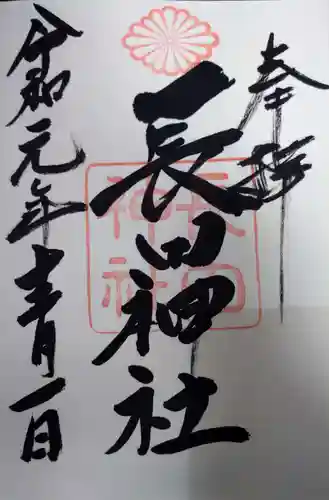 奉拝
長田神社
長田
神社
令和元年十一月一日